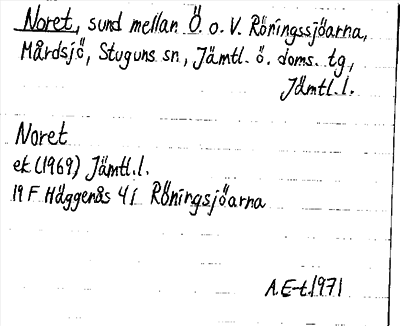 Noret, sund mellan Ö. o. V. Röningssjöarna,
Mårdsjö, Stuguns sn, Jämtl. ö. doms. tg,
Jämtl.l.
Noret
ek (1969) Jämtl.l.
19 F Häggenås 4 i Röningsjöarna
A.E-t.1971